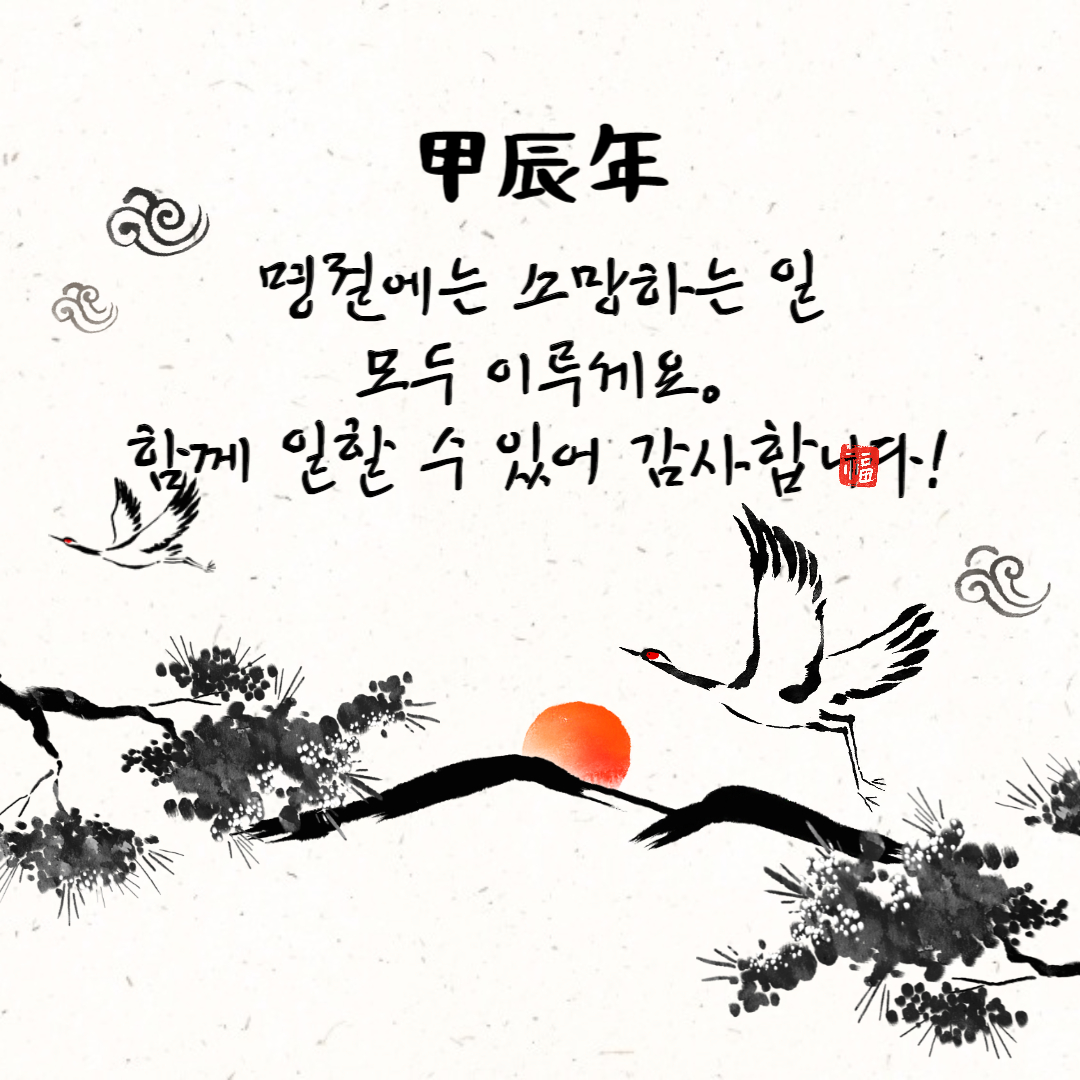 甲辰年
명절에는 소망하는 일
모두 이루세요。
함께 일할 수 있어 감사합니다!
福